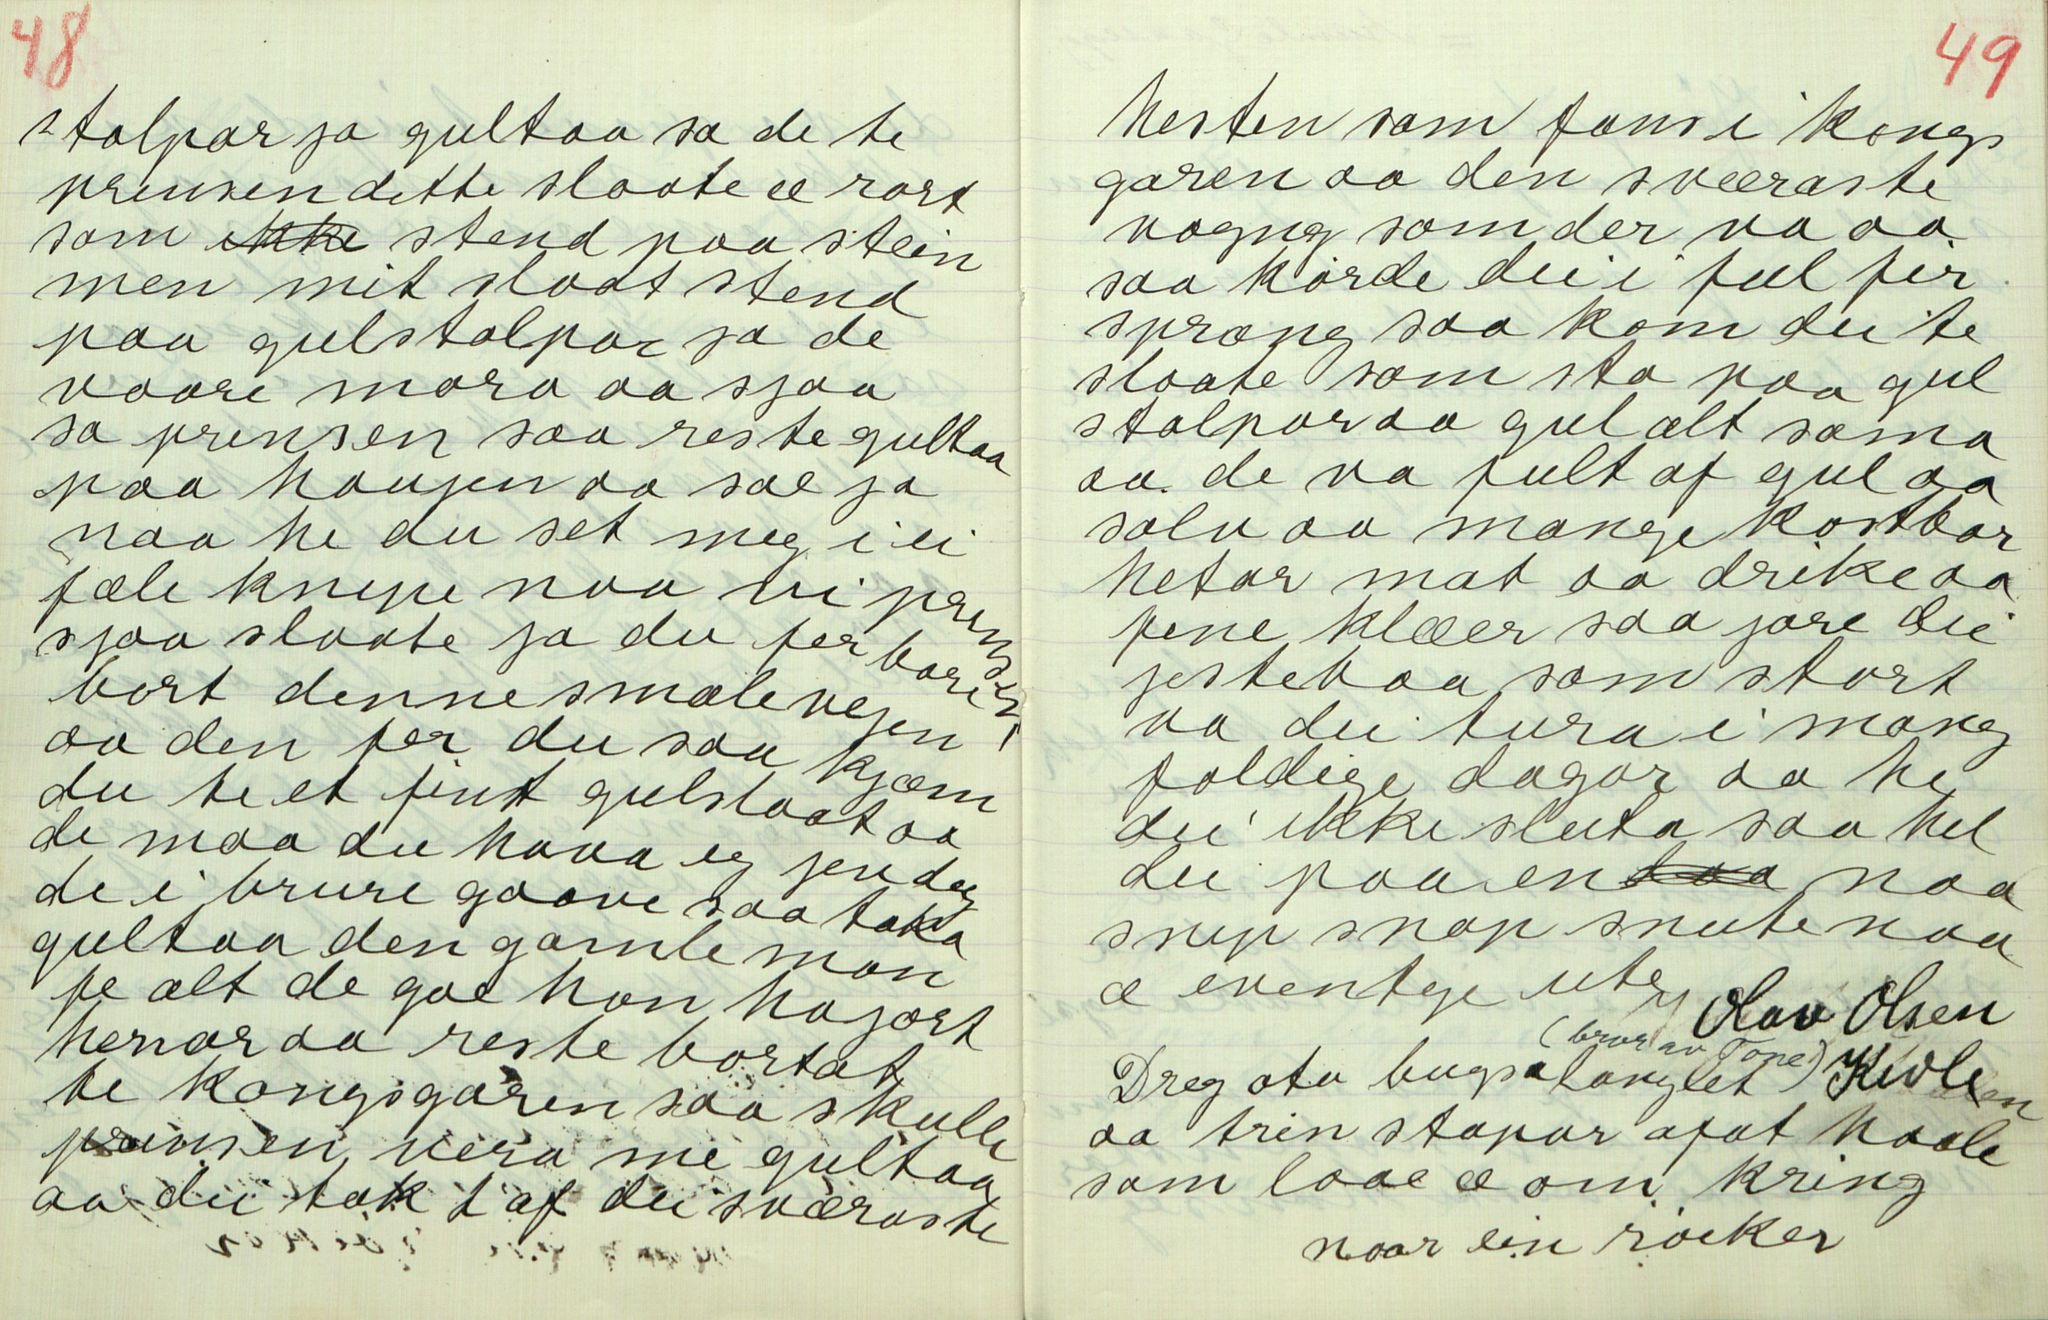 48
stolpar ja gultaa sa de te
prensen dette slaate æ rart
som ikke stend paa stein
men mit slaat stend
paa gulstolpar ja de
vaare mora aa sjaa
sa prensen saa reste gultaa
paa haujen aa sae ja
naa he du set meg i ei
fæle knipe naa vi prensen
sjaa slaate ja du fer bare
bort denne smale vejen
aa den fer du saa kjæm
du te et fint gulslaat aa
de maa du hava eg jev deg
de i brure gaave saa taka
gultaa den gamle man
fe alt de goe han ha jort
henar aa reste bortat
te kongsgaren saa skulle
prinsen vera me gultaa
aa dei tok t af dei sværaste
49
hesten som fans i kongs
garen aa den sværaste
vogng som der va aa
saa kørde dei i ful fir
sprang saa kom dei te
slaate som sto paa gul
stolpar aa gul alt sama
aa de va fult af gul aa
solv aa mange kostbar
hetar mat aa drike aa
fine klæer saa jore dei
jestebaa som stort
va dei tura i mang
foldige dagar aa he
dei ikke sluta saa hel
dei paa en naa
snip snap snute naa
æ eventyje ute
Olav Olsen
(bror av Tone) Kivlen
Dreg ata bugsa langlet
aa trin stapar afat haale
som laae æ om kring
naar ein røiker